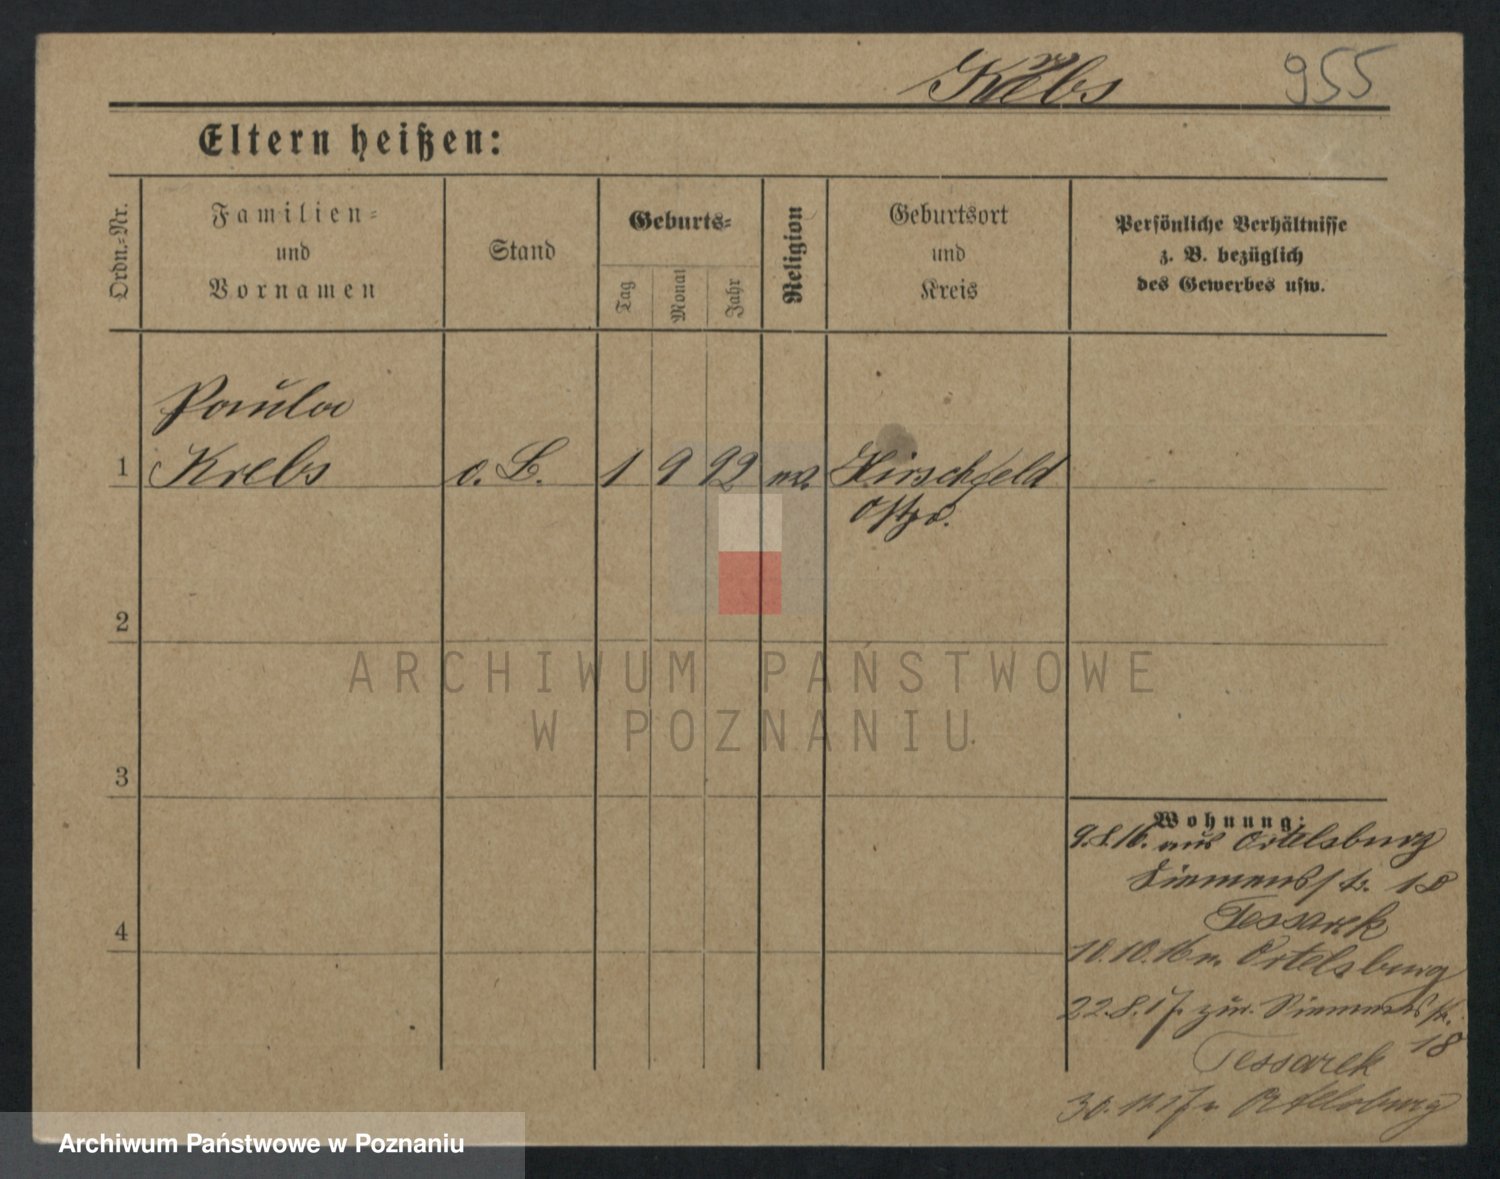 Krebs 955
Eltern heißen:
Ordn.-Nr.
Familien-
und
Vornamen
Stand
Geburts-
Tag
Monat
Jahr
Religion
Geburtsort
und
Kreis
Persönliche Verhältnisse
z. B. bezüglich
des Gewerbes usw.
Paula
1 Krebs o. B. 1 9 92 Hirschfeld
Ostpr.
2
3
4
ARCHIWUM PAŃSTWOWE
W POZNANIU
Wohnung:
9.8.16. aus Ortelsburg
Siemensstr. 18
Tessarek
10.10.16 n. Ortelsburg
22.8.17. zur. Siemensstr.
18
Tessarek
Ortelsburg
Archiwum Państwowe w Poznaniu